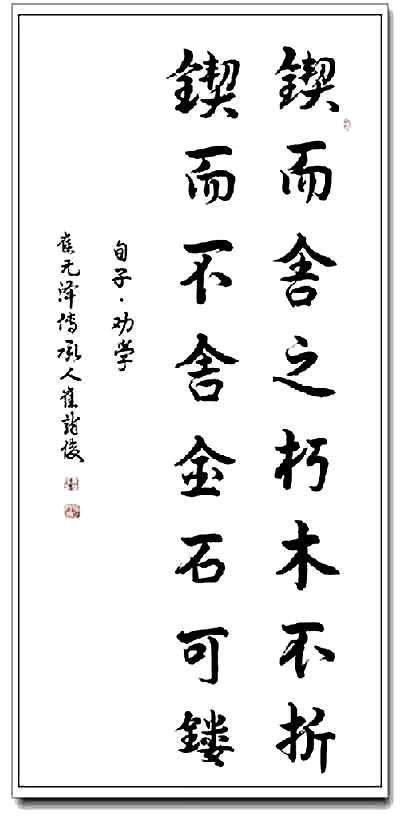 锲而舍之朽木不折
锲而不舍金石可镂
旬子·劝学
崔元泽传承人崔俊